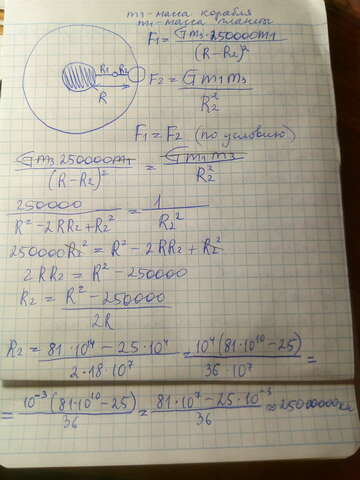 m₃ - масса корабля
m₁ - масса планеты
F₁ = Gm₃·250000m₁ / (R-R₂)²
R₁ R₂
R
F₂ = Gm₁m₃ / R₂²
F₁ = F₂ (по условию)
Gm₃250000m₁ / (R-R₂)² = Gm₁m₃ / R₂²
250000 / R²-2RR₂+R₂² = 1 / R₂²
250000R₂² = R² - 2RR₂ + R₂²
2RR₂ = R² - 250000
R₂ = R² - 250000 / 2R
R₂ = 81·10¹⁴ - 25·10⁴ / 2·18·10⁷ = 10⁴(81·10¹⁰ - 25) / 36·10⁷ =
= 10⁻³(81·10¹⁰ - 25) / 36 = 81·10⁷ - 25·10⁻³ / 36 ≈